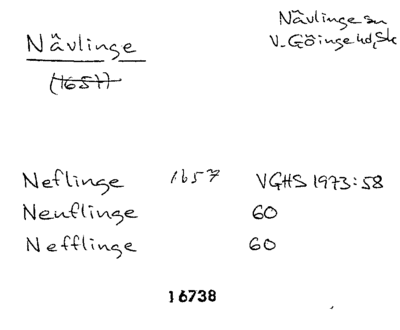 Nâvlinge
Nâvlinge sn
V. Göinge hd, Sk
(1657)
Neflinge 1657 VGHS 1973:58
Neuflinge 60
Nefflinge 60
16738